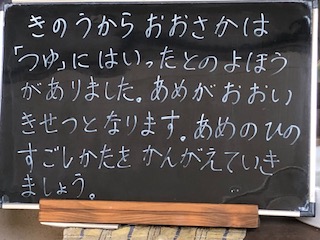 きのうから おおさかは
「つゆ」に はいったとの よほう
が ありました。あめが おおい
きせつと なります。あめの ひの
すごしかたを かんがえていき
ましょう。